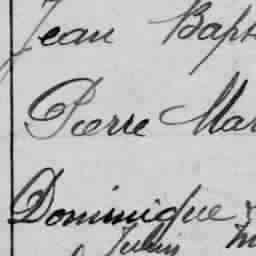 Jean Bap
Pierre Mar
Dominique
Julien